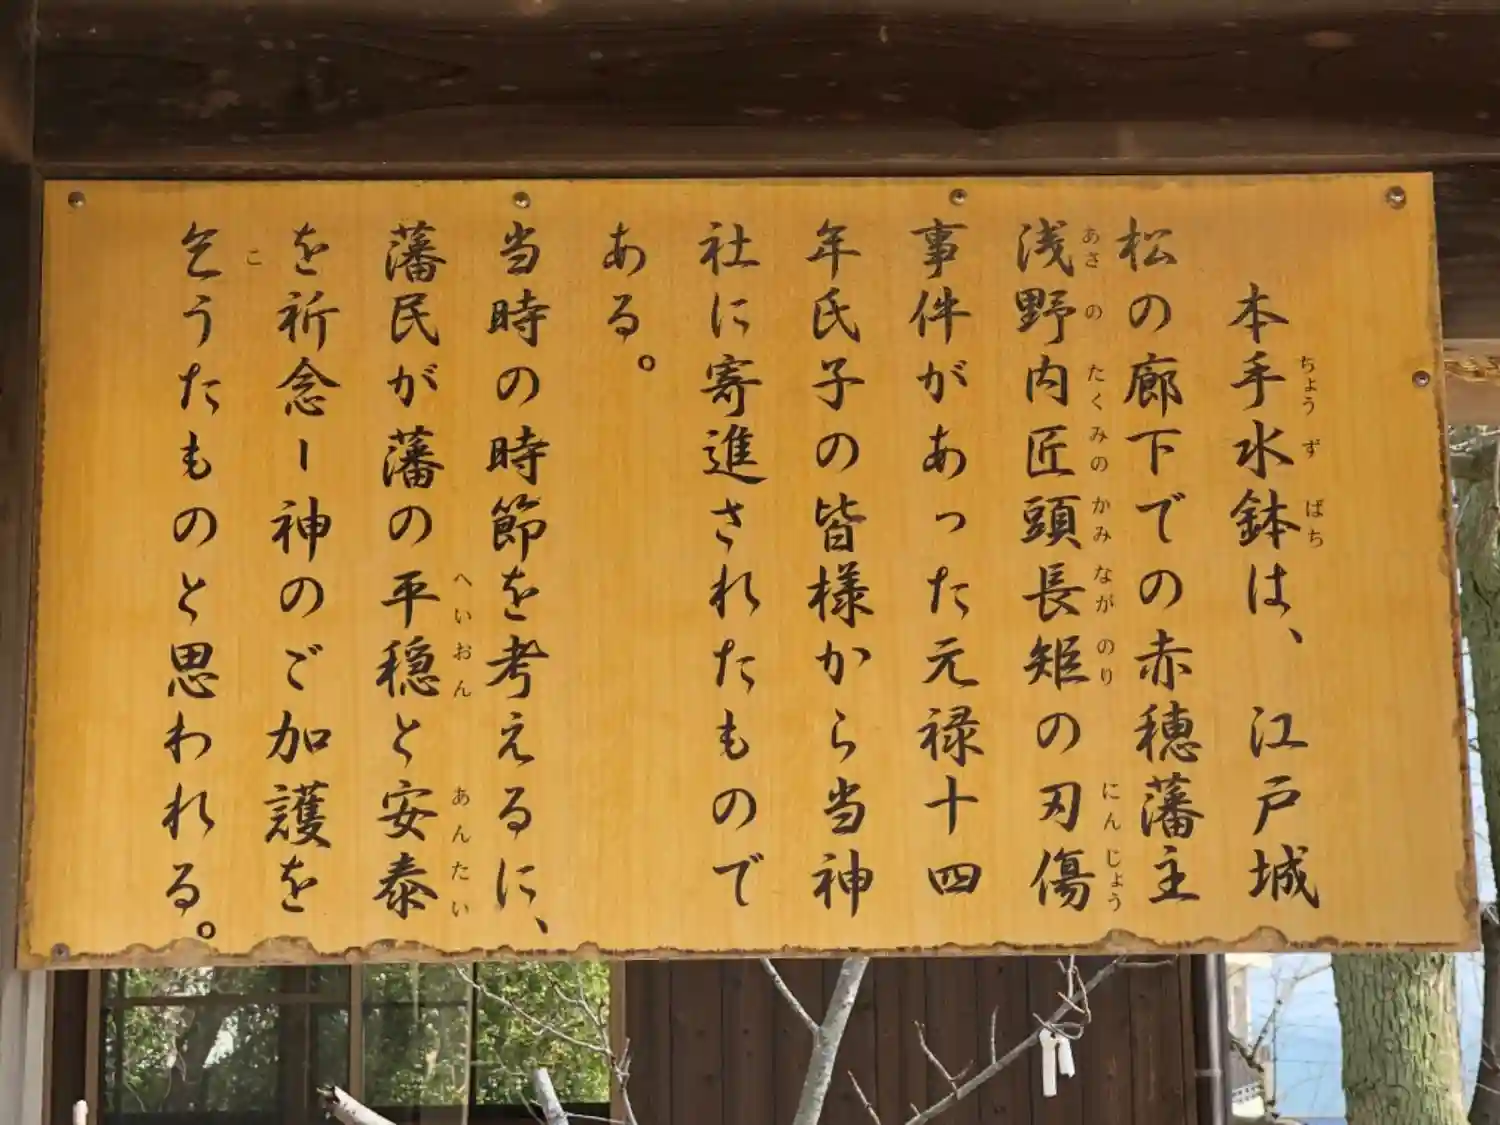 本手水鉢は、江戸城
松の廊下での赤穂藩主
浅野内匠頭長矩の刃傷
事件があった元禄十四
年氏子の皆様から当神
社に寄進されたもので
ある。
当時の時節を考えるに、
藩民が藩の平穏と安泰
を祈念し神のご加護を
乞うたものと思われる。
ちょうずばち
あさのたくみのかみながのり
にんじょう
へいおん
あんたい
こ